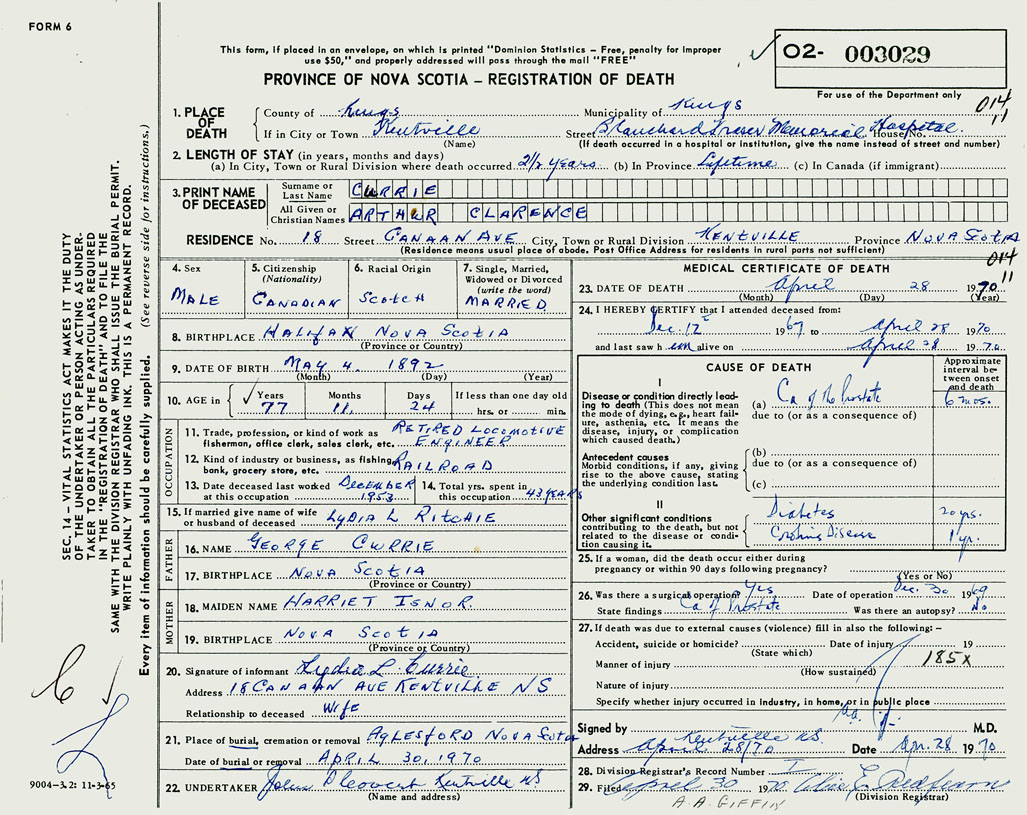 FORM 6
This form, if placed in an envelope, on which is printed "Dominion Statistics – Free, penalty for improper
use $50," and properly addressed will pass through the mail "FREE"
PROVINCE OF NOVA SCOTIA – REGISTRATION OF DEATH
02- 003029
For use of the Department only
014
11
1. PLACE OF DEATH
County of Kings Municipality of Kings
If in City or Town Kentville Street Blanchard Fraser Memorial Hospital House No.
(Name) (If death occurred in a hospital or institution, give the name instead of street and number)
2. LENGTH OF STAY (in years, months and days)
(a) In City, Town or Rural Division where death occurred 2 1/2 years (b) In Province Lifetime (c) In Canada (if immigrant)
3. PRINT NAME OF DECEASED
Surname or Last Name CURRIE
All Given or Christian Names ARTHUR CLARENCE
RESIDENCE No. 18 Street CANAAN AVE City, Town or Rural Division KENTVILLE Province NOVA SCOTIA
(Residence means usual place of abode. Post Office Address for residents in rural parts not sufficient)
014
11
4. Sex MALE
5. Citizenship (Nationality) CANADIAN
6. Racial Origin SCOTCH
7. Single, Married, Widowed or Divorced (write the word) MARRIED
8. BIRTHPLACE HALIFAX NOVA SCOTIA
(Province or Country)
9. DATE OF BIRTH MAY 4. 1892
(Month) (Day) (Year)
10. AGE in Years 77 Months 11. Days 24 If less than one day old hrs. or min.
OCCUPATION
11. Trade, profession, or kind of work as fisherman, office clerk, sales clerk, etc. RETIRED LOCOMOTIVE ENGINEER
12. Kind of industry or business, as fishing, bank, grocery store, etc. RAILROAD
13. Date deceased last worked at this occupation DECEMBER 1953
14. Total yrs. spent in this occupation 43 YEARS
15. If married give name of wife or husband of deceased LYDIA L RITCHIE
FATHER
16. NAME GEORGE CURRIE
17. BIRTHPLACE NOVA SCOTIA
(Province or Country)
MOTHER
18. MAIDEN NAME HARRIET ISNOR.
19. BIRTHPLACE NOVA SCOTIA
(Province or Country)
20. Signature of informant Lydia L. Currie
Address 18 CANAAN AVE KENTVILLE NS
Relationship to deceased WIFE
21. Place of burial, cremation or removal AYLESFORD NOVA SCOTIA
Date of burial or removal APRIL 30, 1970
22. UNDERTAKER John Kentville NS
(Name and address)
MEDICAL CERTIFICATE OF DEATH
23. DATE OF DEATH April 28 1970
(Month) (Day) (Year)
24. I HEREBY CERTIFY that I attended deceased from:
Dec. 12 1967 to April 28 1970
and last saw h im alive on April 28 1970
CAUSE OF DEATH
Approximate interval between onset and death
I
Disease or condition directly leading to death (This does not mean the mode of dying, e.g., heart failure, asthenia, etc. It means the disease, injury, or complication which caused death.)
(a) Ca of the Prostate 6 mos.
due to (or as a consequence of)
Antecedent causes
Morbid conditions, if any, giving rise to the above cause, stating the underlying condition last.
(b)
due to (or as a consequence of)
(c)
II
Other significant conditions contributing to the death, but not related to the disease or condition causing it.
Diabetes 20 yrs.
Disease 1 yr.
25. If a woman, did the death occur either during
pregnancy or within 90 days following pregnancy?
(Yes or No)
26. Was there a surgical operation? Yes Date of operation Dec. 30 1969
State findings Ca of Prostate Was there an autopsy? No
27. If death was due to external causes (violence) fill in also the following: –
Accident, suicide or homicide? Date of injury 19
(State which)
185X
Manner of injury
(How sustained)
Nature of injury
Specify whether injury occurred in industry, in home, or in public place
Signed by M.D.
Kentville NS.
Address April 28/70 Date Apr. 28 1970
28. Division Registrar's Record Number
29. Filed April 30 1970 E. Redfearn
(Division Registrar)
A. A. GIFFIN
SEC. 14 – VITAL STATISTICS ACT MAKES IT THE DUTY
OF THE UNDERTAKER OR PERSON ACTING AS UNDER-
TAKER TO OBTAIN ALL THE PARTICULARS REQUIRED
IN THE "REGISTRATION OF DEATH" AND TO FILE THE
SAME WITH THE DIVISION REGISTRAR WHO SHALL ISSUE THE BURIAL PERMIT.
WRITE PLAINLY WITH UNFADING INK. THIS IS A PERMANENT RECORD.
Every item of information should be carefully supplied. (See reverse side for instructions.)
9004-3.2: 11-3-65